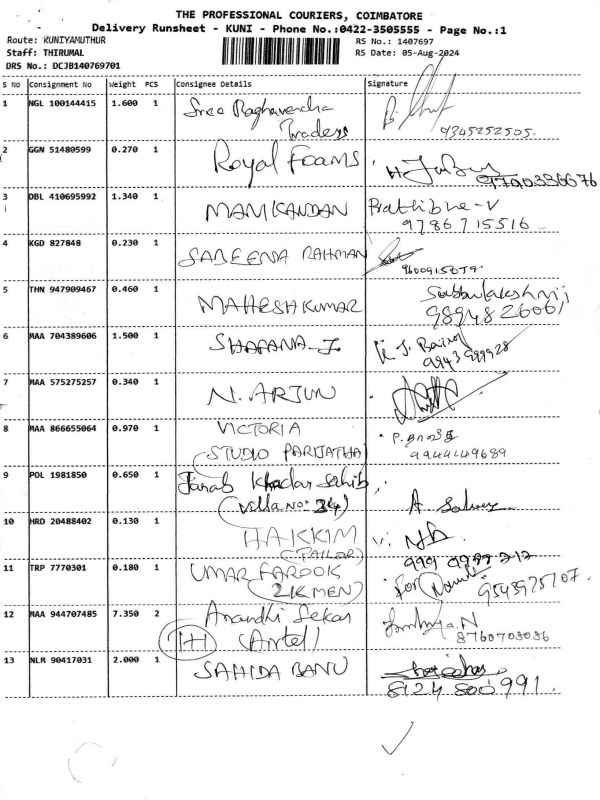 THE PROFESSIONAL COURIERS, COIMBATORE
Delivery Runsheet - KUNI - Phone No.:0422-3505555 - Page No.:1
Route: KUNIYAMUTHUR
RS No.: 1407697
Staff: THIRUMAL
RS Date: 05-Aug-2024
DRS No.: DCJB140769701
S No Consignment No Weight PCS Consignee Details Signature
1 NGL 100144415 1.600 1 Sree Raghavendra
Traders
9345252505
2 GGN 51480599 0.270 1 Royal Foams
3 DBL 410695992 1.340 1 MANIKANDAN Prathibha-V
9786715516
4 KGD 827848 0.230 1 SABEENA RAHMAN
5 THN 947909467 0.460 1 MAHESH KUMAR Subbulakshmi
9894826061
6 MAA 704389606 1.500 1 SHAFANA J
7 MAA 575275257 0.340 1 N. ARJUN
8 MAA 866655064 0.970 1 VICTORIA
STUDIO PARIJATHA
9944449689
9 POL 1981850 0.650 1 Janab Khadar Sahib,
(Villa No: 34)
10 HRD 20488402 0.130 1 HAKKIM
(TAILOR)
11 TRP 7770301 0.180 1 UMAR FAROOK
(2KMEN) for
12 MAA 944707485 7.350 2 Anandhi Sekar
1+1 (Airtel)
8760708086
13 NLM 90417031 2.000 1 SAHIDA BANU
8124 800 991